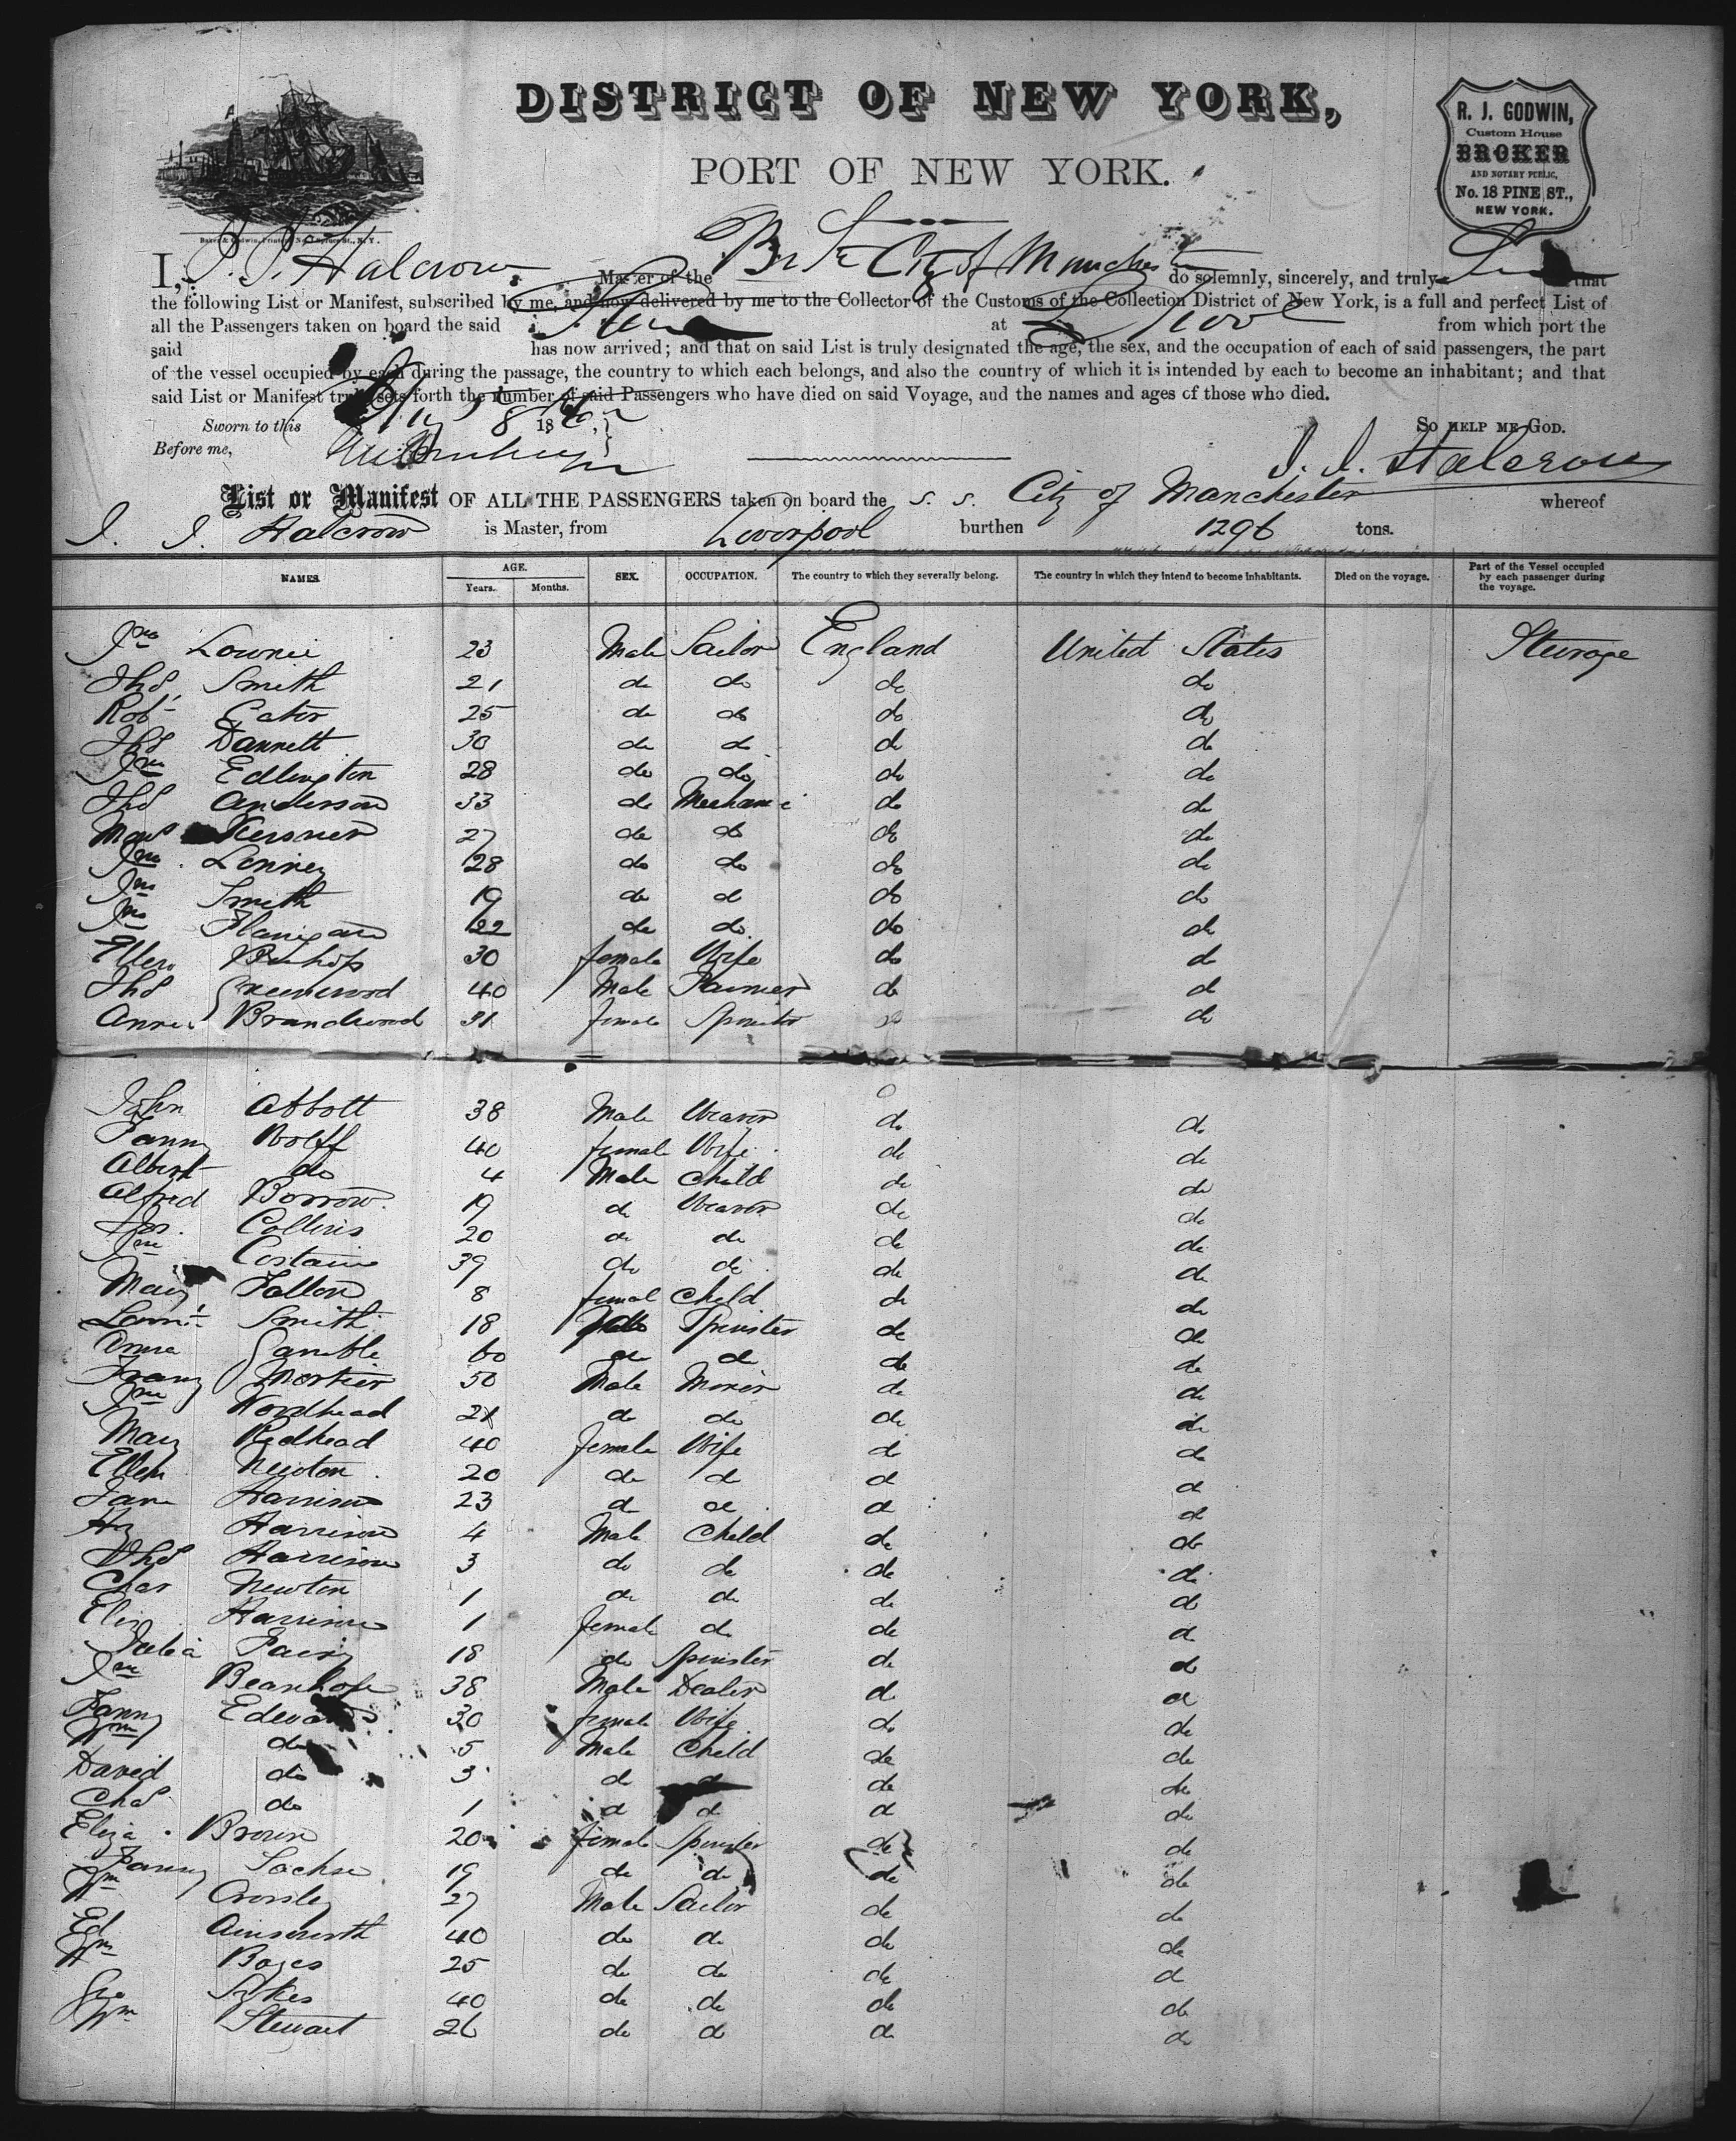 DISTRICT OF NEW YORK,
PORT OF NEW YORK.
R. J. GODWIN,
Custom House
BROKER
AND NOTARY PUBLIC,
No. 18 PINE ST.,
NEW YORK.
I, J. J. Halcrow Master of the Br Str City of Manchester do solemnly, sincerely, and truly that
the following List or Manifest, subscribed by me, and now delivered by me to the Collector of the Customs of the Collection District of New York, is a full and perfect List of
all the Passengers taken on board the said at L'pool from which port the
said has now arrived; and that on said List is truly designated the age, the sex, and the occupation of each of said passengers, the part
of the vessel occupied by each during the passage, the country to which each belongs, and also the country of which it is intended by each to become an inhabitant; and that
said List or Manifest truly sets forth the number of said Passengers who have died on said Voyage, and the names and ages of those who died.
Sworn to this 8 18 SO HELP ME GOD.
Before me, J. J. Halcrow
List or Manifest OF ALL THE PASSENGERS taken on board the S. S. City of Manchester whereof
J. J. Halcrow is Master, from Liverpool burthen 1296 tons.
NAMES. AGE. Years. Months. SEX. OCCUPATION. The country to which they severally belong. The country in which they intend to become inhabitants. Died on the voyage. Part of the Vessel occupied by each passenger during the voyage.
Jno Lownie 23 Male Sailor England United States Steerage
Thos Smith 21 do do do do
Robt Cator 25 do do do do
Thos Dannett 30 do do do do
Jno Edlington 28 do do do do
Thos Anderson 33 do Mechanic do do
27 do do do do
Jno Lenney 28 do do do do
Jno Smith 19 do do do do
Jno Flanigan 22 do do do do
Ellen Bishop 30 female Wife do do
Thos Greenwood 40 Male Farmer do do
Annie Brandwood 31 female Spinster do do
John Abbott 38 Male Weaver do do
Fanny Wolff 40 female Wife do do
Albert do 4 Male Child do do
Alfred Borrow 19 do Weaver do do
Collins 20 do do do do
Jno Costain 39 do do do do
Mary Fallon 8 female Child do do
Smith 18 Spinster do do
Anna Gamble 60 do do do do
Franz Mortier 50 Male Miner do do
Jno Woodhead 21 do do do do
Mary Redhead 40 female Wife do do
Ellen Newton 20 do do do do
Jane Harrison 23 do do do do
Hy Harrison 4 Male Child do do
Thos Harrison 3 do do do do
Chas Newton 1 do do do do
Eliz Harrison 1 female do do do
Julia 18 do Spinster do do
Jno 38 Male Dealer do do
Fanny Edwards 30 female Wife do do
Wm do 5 Male Child do do
David do 3 do do do do
Chas do 1 do do do do
Eliza Brown 20 female Spinster do do
Fanny Sachse 19 do do do do
Wm Crossley 27 Male Sailor do do
Ed Ainsworth 40 do do do do
Wm 25 do do do do
Geo Sykes 40 do do do do
Wm Stewart 26 do do do do